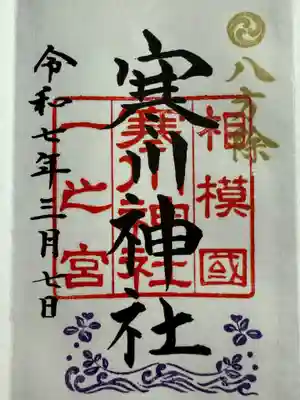 八方除
寒川神社
相模國
一之宮
寒川神社
令和七年三月七日